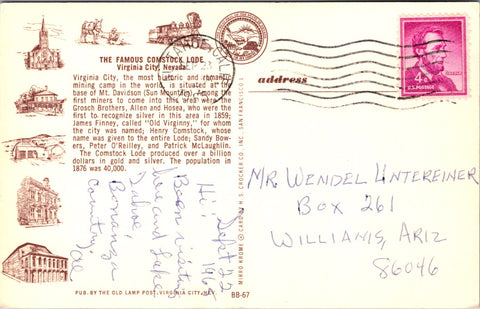 THE FAMOUS COMSTOCK LODE
Virginia City, Nevada
Virginia City, the most historic and romantic
mining camp in the world, is situated at the
base of Mt. Davidson (Sun Mountain). Among the
first miners to come into this area were the
Grosch Brothers, Allen and Hosea, who were the
first to recognize silver in this area in 1859;
James Finney, called "Old Virginny," for whom
the city was named; Henry Comstock, whose
name was given to the entire Lode; Sandy Bow-
ers, Peter O'Reilley, and Patrick McLaughlin.
The Comstock Lode produced over a billion
dollars in gold and silver. The population in
1876 was 40,000.
Sept 22
Hi!
Been visiting
around Lake
Tahoe,
Bonanza
country.
Al
PUB. BY THE OLD LAMP POST, VIRGINIA CITY, NEV.
BB-67
MIRRO KROME ® CARD BY H. S. CROCKER CO., INC. SAN FRANCISCO 1
TAHOE
CALIF
address
4¢
U.S. POSTAGE
LINCOLN
MR. WENDEL UNTEREINER
BOX 261
WILLIAMS, ARIZ
86046